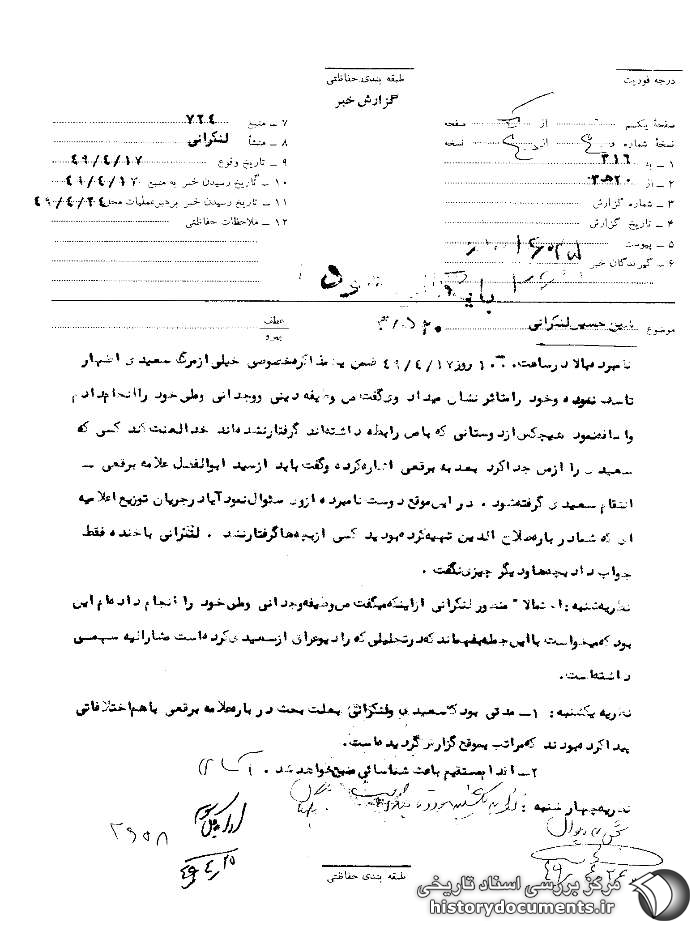 درجه فوریت
طبقه بندی حفاظتی
گزارش خبر
صفحهٔ یکم از صفحه
نسخهٔ شماره از نسخه
۱ – به ۳۱۶
۲ – از ۲۰ه۳
۳ – شماره گزارش
۴ – تاریخ گزارش
۵ – پیوست
۶ – گیرندگان خبر
۷ – منبع ۷۲۴
۸ – منشأ لنکرانی
۹ – تاریخ وقوع ۴۹/۴/۱۷
۱۰ – تاریخ رسیدن خبر به منبع ۴۹/۴/۱۷
۱۱ – تاریخ رسیدن خبر برهبرعملیات محل ۴۹/۴/۲۴
۱۲ – ملاحظات حفاظتی
موضوع شیخ حسین لنکرانی
عطف
پیرو
نامبرده بالا در ساعت ۱۰۰۰ روز ۴۹/۴/۱۷ ضمن یک مذاکره خصوصی خیلی از مرگ سعیدی اظهار
تاسف نموده و خود را متاثر نشان میداد وی گفت من وظیفه دینی و وجدانی وطنی خود را انجام دادم
و اضافه نمود هیچکس از دوستانی که با من رابطه داشته‌اند گرفتار نشده‌اند خدا لعنت کند کسی که
سعیدی را از من جدا کرد بعد به برقعی اشاره کرده و گفت باید از سید ابوالفضل علامه برقعی –
انتقام سعیدی گرفته شود . در این موقع دوست نامبرده از وی سئوال نمود آیا در جریان توزیع اعلامیه
ای که شما در باره صلاح الدین تهیه کرده بودید کسی از بچه‌ها گرفتار نشد . لنکرانی با خنده فقط
جواب داد بچه‌ها و دیگر چیزی نگفت .
نظریه شنبه : احتمالا" منظور لنکرانی از اینکه میگفت من وظیفه وجدانی وطنی خود را انجام داده‌ام این
بود که میخواست با این جمله بفهماند که در تجلیلی که رادیو عراق از سعیدی کرده است مشارالیه سهمی
داشته است.
نظریه یکشنبه : ۱– مدتی بود که سعیدی و لنکرانی بعلت بحث در باره علامه برقعی با هم اختلافاتی
پیدا کرده بودند که مراتب بموقع گزارش گردیده است.
۲– اقدام مستقیم باعث شناسائی منبع خواهد شد .
نظریه چهارشنبه :
۴۹/۴/۲۵
طبقه بندی حفاظتی
مرکز بررسی اسناد تاریخی
historydocuments.ir